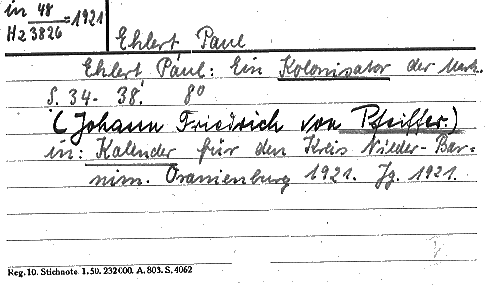 in 48
Hz 3826 = 1921
Ehlert Paul
Ehlert Paul: Ein Kolonisator der Mark.
S. 34-38. 8°
(Johann Friedrich von Pfeiffer.)
in: Kalender für den Kreis Nieder-Bar=
nim. Oranienburg 1921. Jg. 1921.
Reg. 10. Stichnote 1. 50. 232000. A. 803. S. 4062